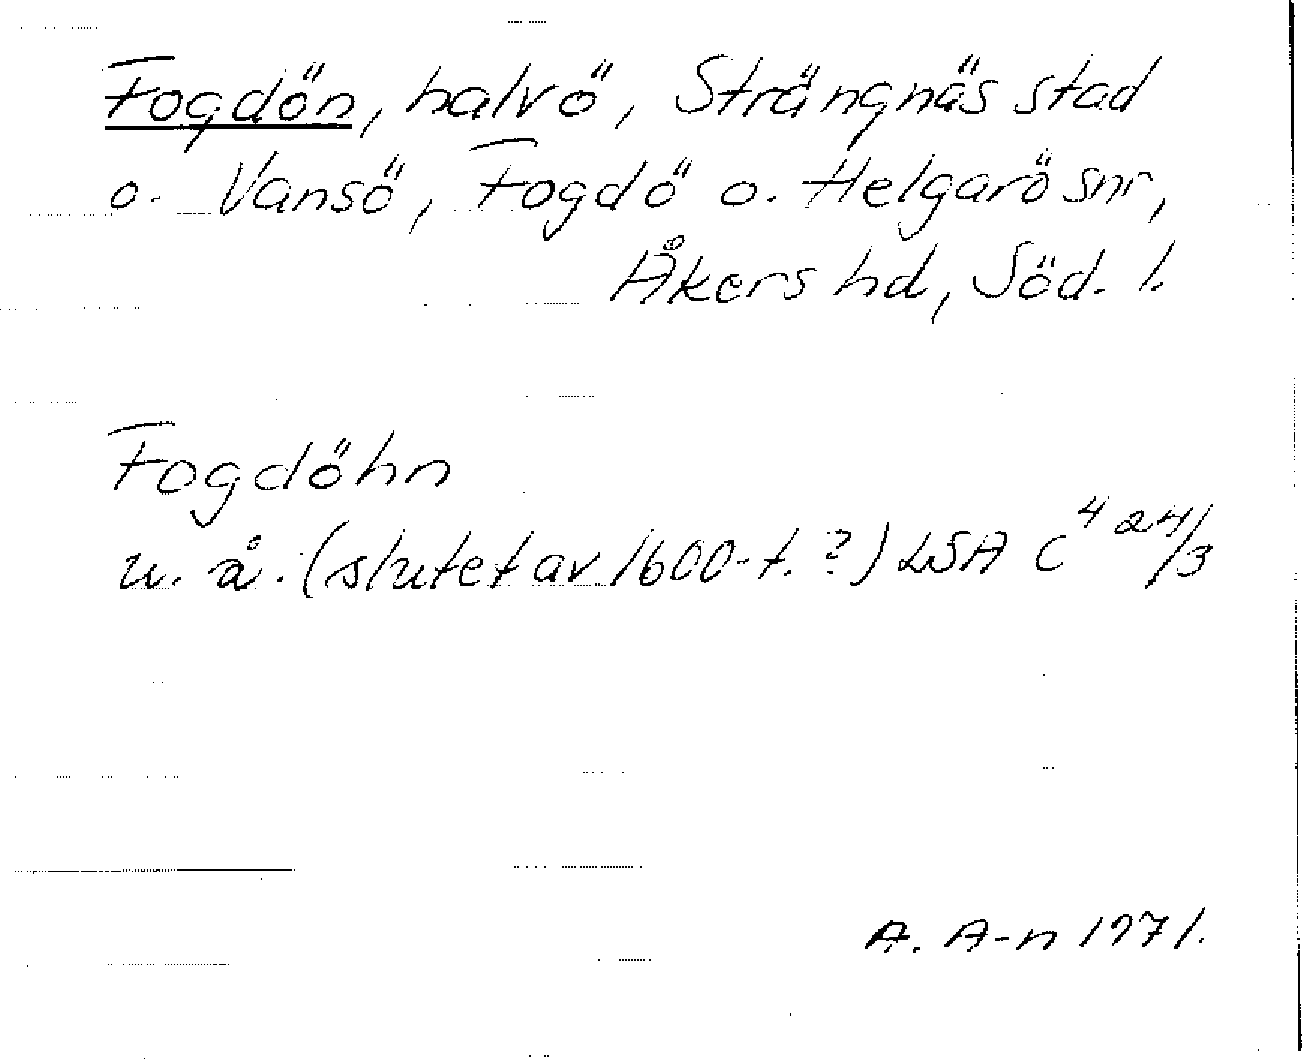 Fogdön, halvö, Strängnäs stad
o. Vansö, Fogdö o. Helgarö snr,
Åkers hd, Söd. l.
Fogdöhn
u. å. (slutet av 1600-t. ?) LSA C⁴ 24/3
A. A-n 1971.